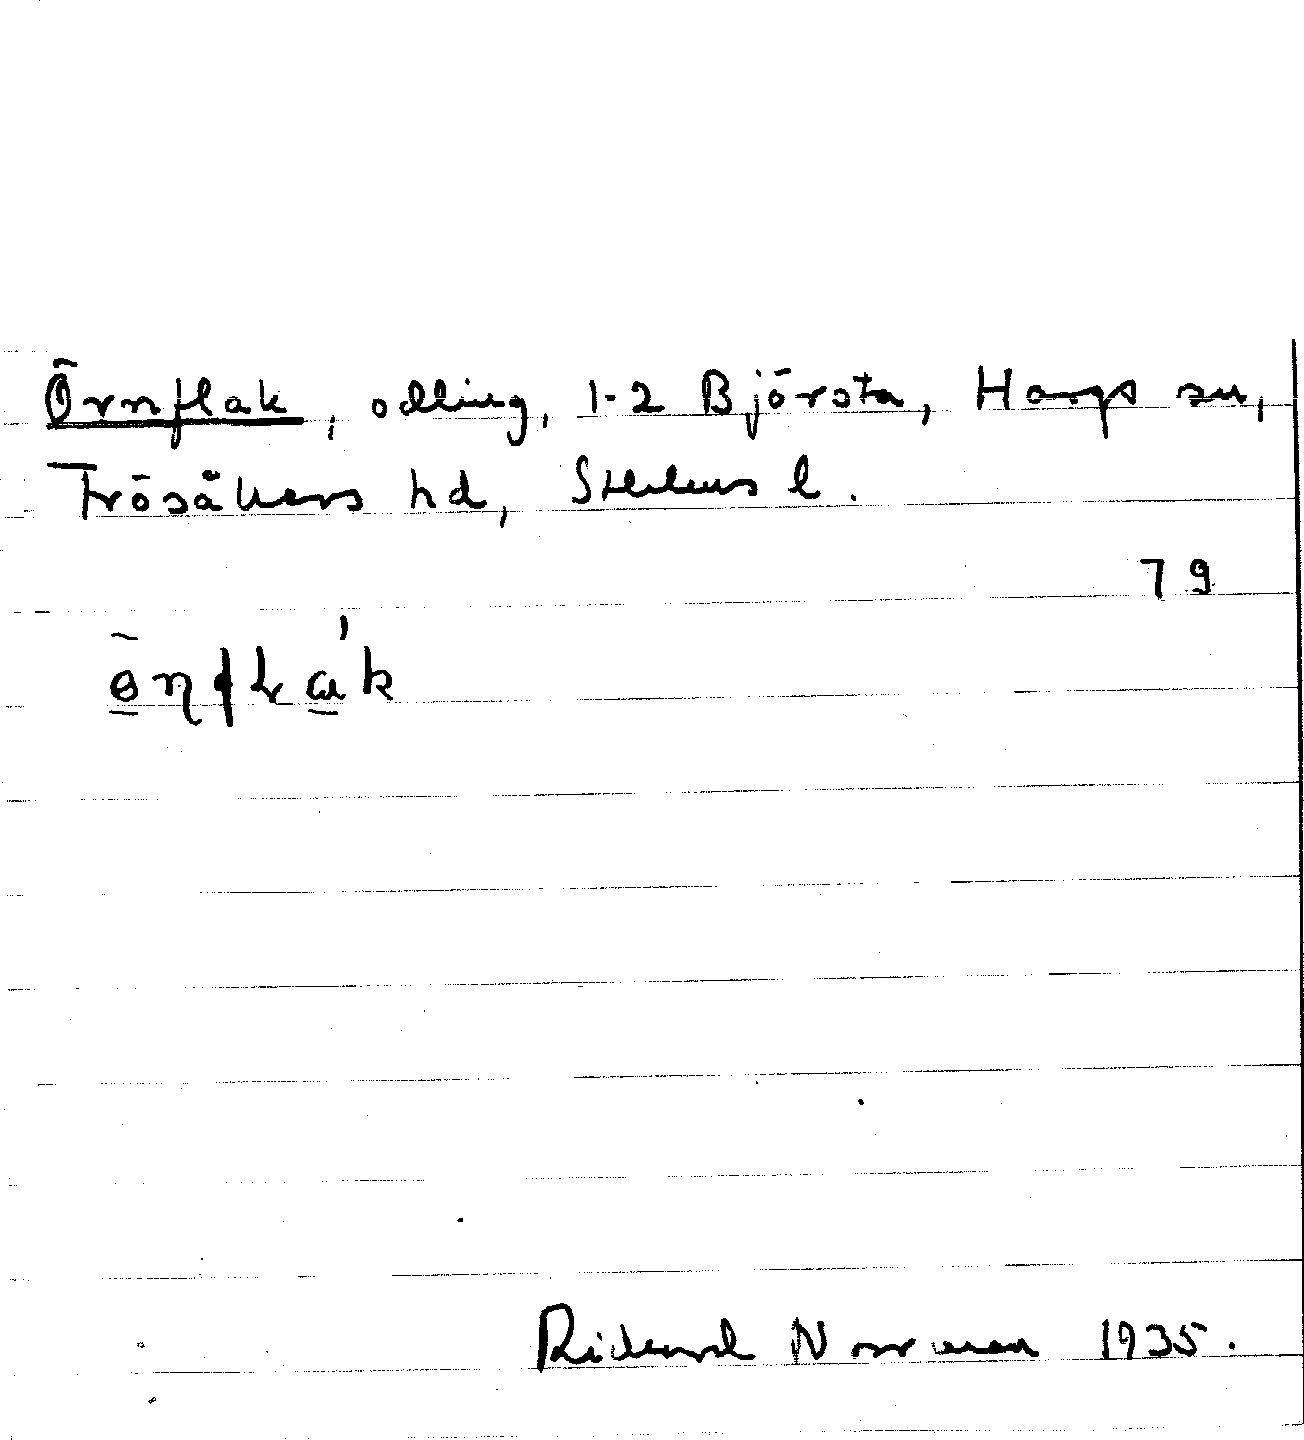 Örnflak, odling, 1-2 Björsta, Hargs sn,
Frösåkers hd, Sthlms l.
79
Rickard Norrman 1935.